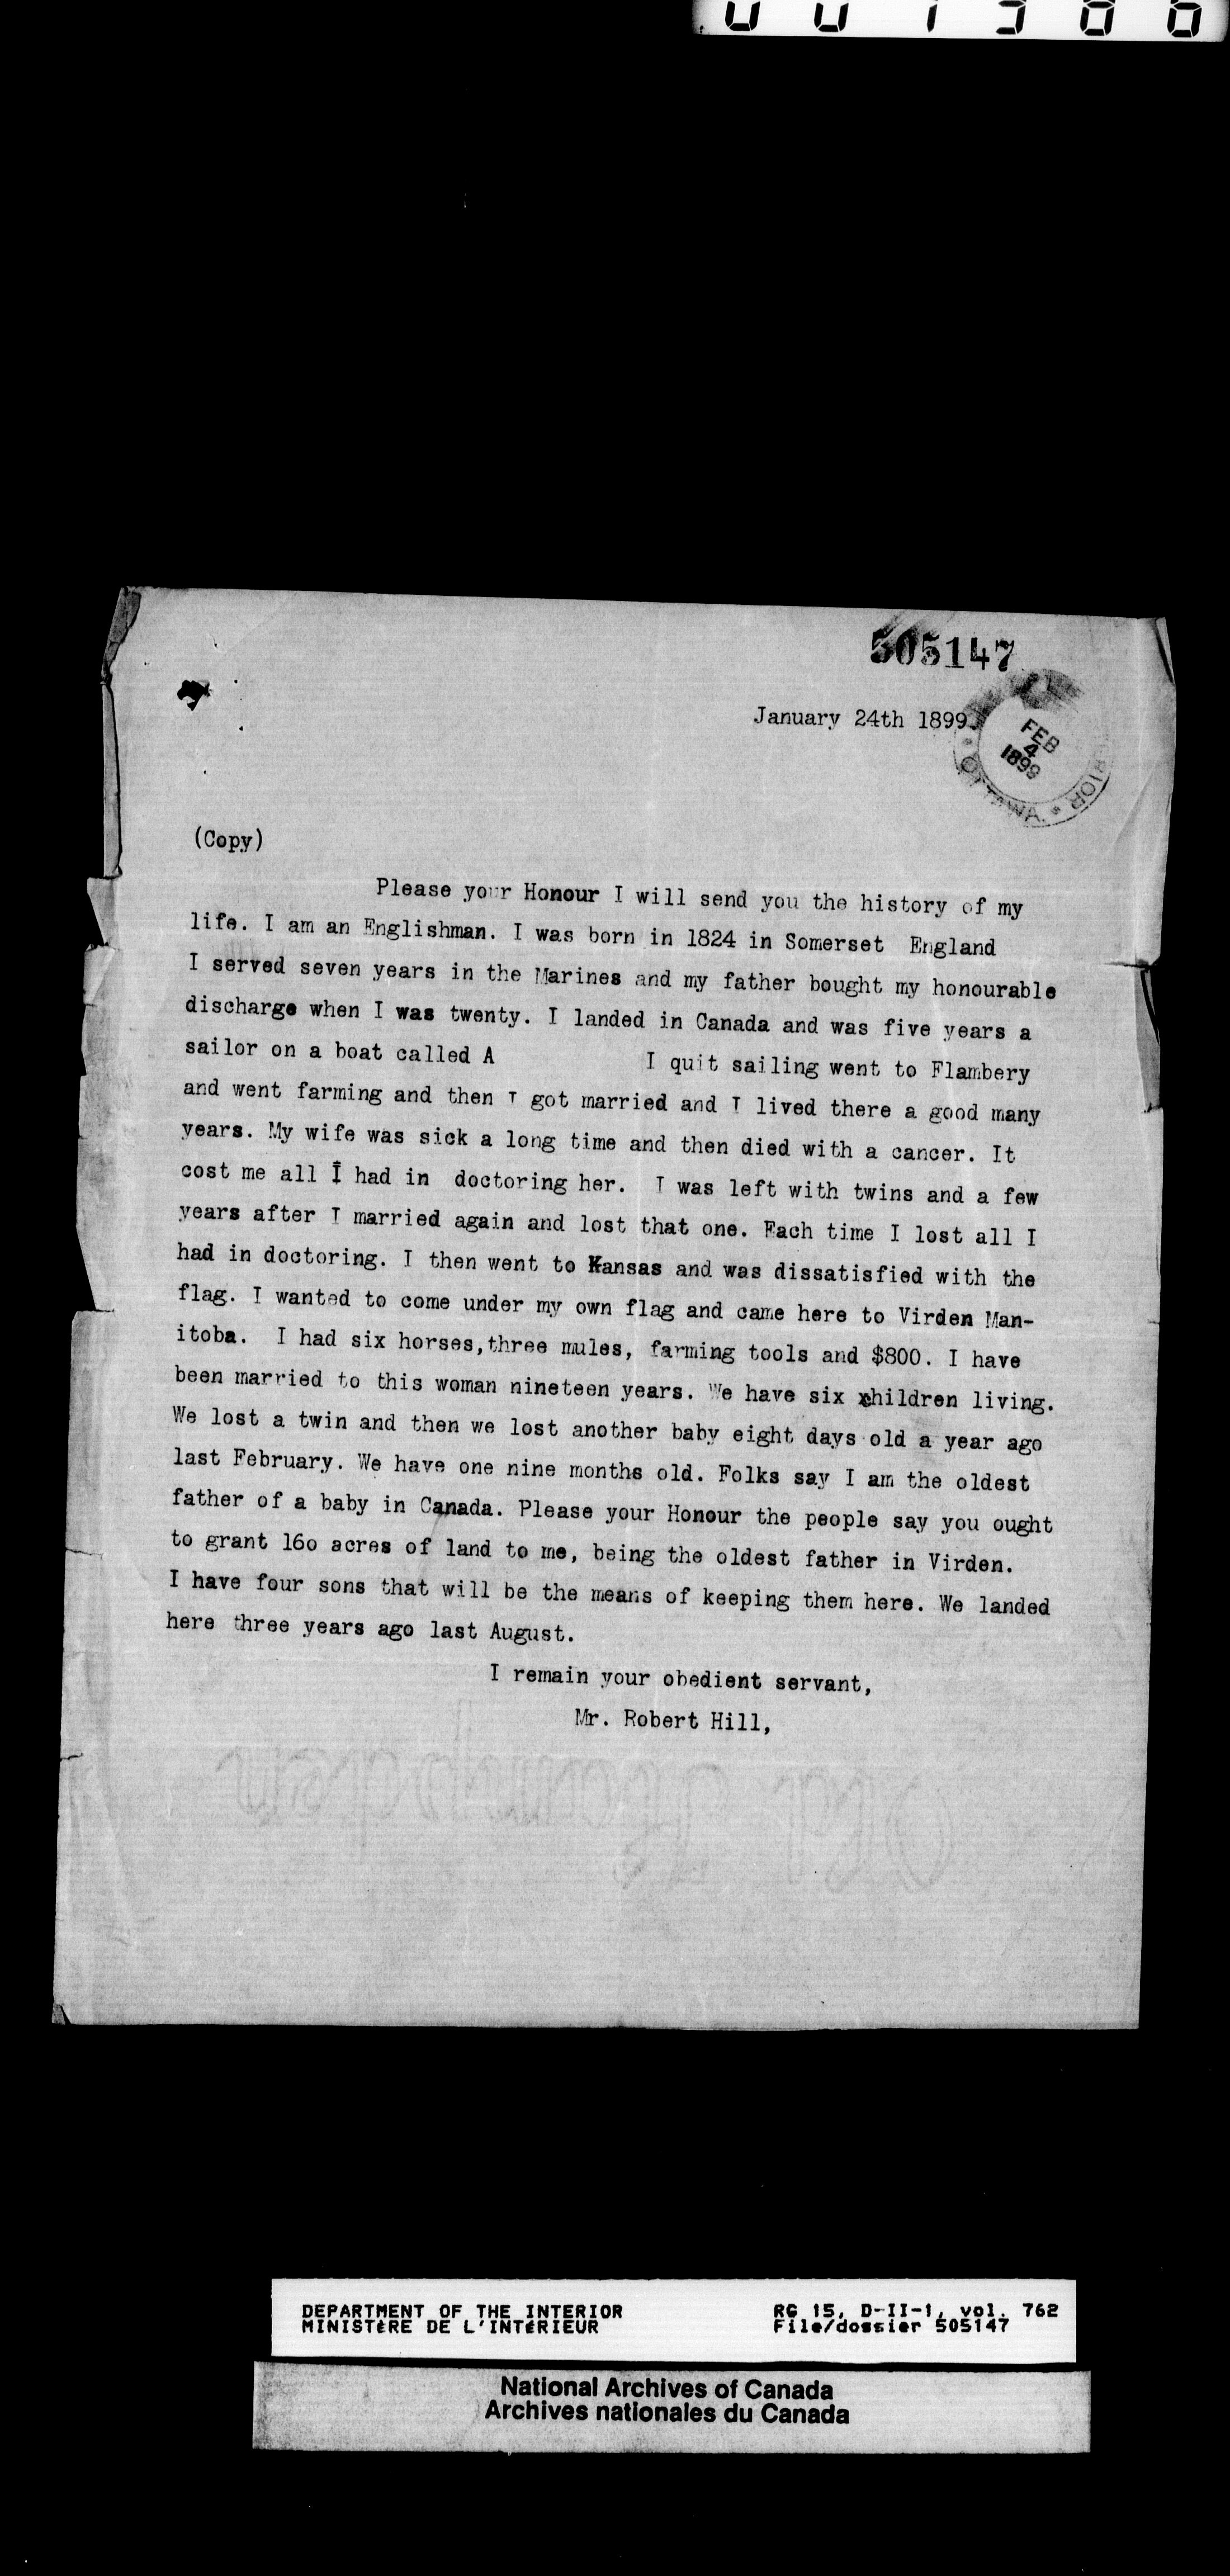 505147
January 24th 1899.
FEB
4
1899
OTTAWA
(Copy)
Please your Honour I will send you the history of my
life. I am an Englishman. I was born in 1824 in Somerset England
I served seven years in the Marines and my father bought my honourable
discharge when I was twenty. I landed in Canada and was five years a
sailor on a boat called A I quit sailing went to Flambery
and went farming and then I got married and I lived there a good many
years. My wife was sick a long time and then died with a cancer. It
cost me all I had in doctoring her. I was left with twins and a few
years after I married again and lost that one. Each time I lost all I
had in doctoring. I then went to Kansas and was dissatisfied with the
flag. I wanted to come under my own flag and came here to Virden Man-
itoba. I had six horses, three mules, farming tools and $800. I have
been married to this woman nineteen years. We have six children living.
We lost a twin and then we lost another baby eight days old a year ago
last February. We have one nine months old. Folks say I am the oldest
father of a baby in Canada. Please your Honour the people say you ought
to grant 160 acres of land to me, being the oldest father in Virden.
I have four sons that will be the means of keeping them here. We landed
here three years ago last August.
I remain your obedient servant,
Mr. Robert Hill,
DEPARTMENT OF THE INTERIOR RG 15, D-II-1, vol. 762
MINISTÈRE DE L'INTÉRIEUR File/dossier 505147
National Archives of Canada
Archives nationales du Canada